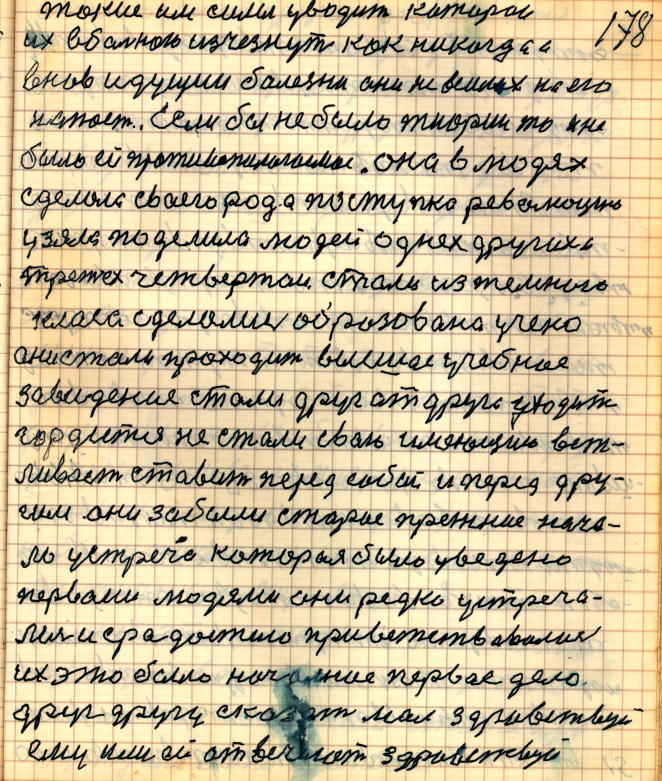 такие им силы уводит каторои
178
их вбалною изчезнут как никогда а
внов идущии болезни они не
на его
напост. Если бы не было теории то и не
было ей противоположное. она в людях
сделала своего рода поступка революцию
узяла поделила людей однех других а
третех четвертаи стали из темного
класа сделалися образована учено
они стали проходит высшае учебное
заведение стали друг от друга уходит
гордится не стали свою имеющию веж-
ливаст ставит перед собой и перед дру-
гим они забыли старое прежние нача-
ло устреча которая было уведено
первами людями они редко устреча-
лися и срадостию приветствавалися
их это было началное первае дело
друг другу сказат мол здравствуй
ему или ей отвечают здравствуй